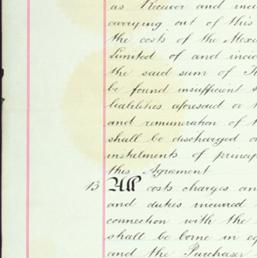 as Receiver and inc
carrying out of this
the costs of the Mexi
Limited of and incid
the said sum of
be found insufficient
liabilities aforesaid or
and remuneration of
shall be discharged o
instalments of princip
this Agreement
13 All costs charges an
and duties incurred
connection with the
shall be borne in eq
and the Purchaser